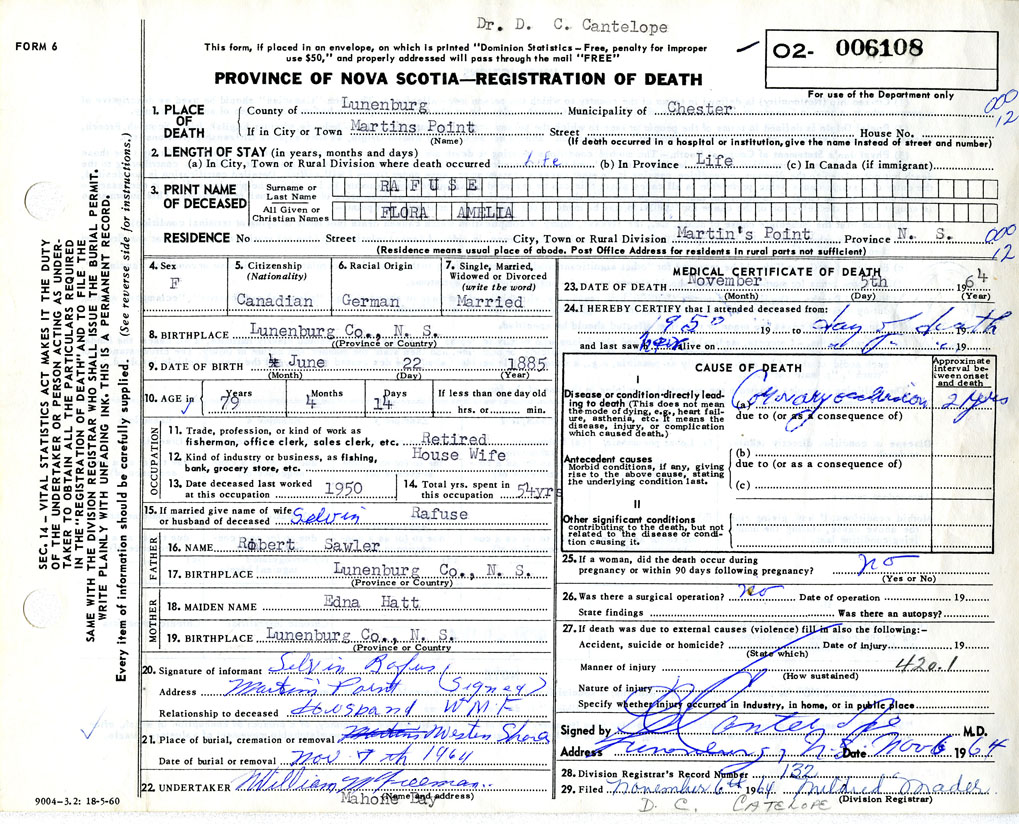 Dr. D. C. Cantelope
FORM 6
This form, if placed in an envelope, on which is printed "Dominion Statistics – Free, penalty for improper
use $50," and properly addressed will pass through the mail "FREE"
O2- 006108
PROVINCE OF NOVA SCOTIA—REGISTRATION OF DEATH
For use of the Department only
1. PLACE OF DEATH County of Lunenburg Municipality of Chester 000
If in City or Town Martins Point Street House No. 12
(Name) (If death occurred in a hospital or institution, give name instead of street and number)
2. LENGTH OF STAY (in years, months and days)
(a) In City, Town or Rural Division where death occurred Life (b) In Province Life (c) In Canada (if immigrant)
3. PRINT NAME OF DECEASED
Surname or Last Name RAFUSE
All Given or Christian Names FLORA AMELIA
RESIDENCE No Street City, Town or Rural Division Martin's Point Province N. S. 000
(Residence means usual place of abode. Post Office Address for residents in rural parts not sufficient) 12
4. Sex F
5. Citizenship (Nationality) Canadian
6. Racial Origin German
7. Single, Married, Widowed or Divorced (write the word) Married
8. BIRTHPLACE Lunenburg Co., N. S.
(Province or Country)
9. DATE OF BIRTH June 22 1885
(Month) (Day) (Year)
10. AGE in Years 79 Months 4 Days 14 If less than one day old hrs. or min.
OCCUPATION
11. Trade, profession, or kind of work as fisherman, office clerk, sales clerk, etc. Retired
12. Kind of industry or business, as fishing, bank, grocery store, etc. House Wife
13. Date deceased last worked at this occupation 1950
14. Total yrs. spent in this occupation 54yrs
15. If married give name of wife or husband of deceased Selvin Rafuse
FATHER
16. NAME Robert Sawler
17. BIRTHPLACE Lunenburg Co., N. S.
(Province or Country)
MOTHER
18. MAIDEN NAME Edna Hatt
19. BIRTHPLACE Lunenburg Co., N. S.
(Province or Country)
20. Signature of informant Selvin Rafus
Address Martins Point (Signed)
Relationship to deceased Husband W.M.F
21. Place of burial, cremation or removal Martins Western Shore
Date of burial or removal Nov 7th 1964
22. UNDERTAKER William M Freeman
(Name and address)
Mahone Bay
9004-3.2: 18-5-60
MEDICAL CERTIFICATE OF DEATH
23. DATE OF DEATH November 5th 1964
(Month) (Day) (Year)
24. I HEREBY CERTIFY that I attended deceased from:
1950 19 to day of death 19
and last saw her alive on 19
CAUSE OF DEATH
Approximate interval between onset and death
I
Disease or condition directly leading to death (This does not mean the mode of dying, e.g., heart failure, asthenia, etc. It means the disease, injury, or complication which caused death.)
(a) Coronary occlusion 2 yrs
due to (or as a consequence of)
Antecedent causes
Morbid conditions, if any, giving rise to the above cause, stating the underlying condition last.
(b)
due to (or as a consequence of)
(c)
II
Other significant conditions
contributing to the death, but not related to the disease or condition causing it.
25. If a woman, did the death occur during pregnancy or within 90 days following pregnancy? no
(Yes or No)
26. Was there a surgical operation? no Date of operation 19
State findings Was there an autopsy?
27. If death was due to external causes (violence) fill in also the following:–
Accident, suicide or homicide? Date of injury 19
(State which)
Manner of injury 420.1
(How sustained)
Nature of injury
Specify whether injury occurred in Industry, in home, or in public place
Signed by D C Cantelope M.D.
Address Lunenburg, N.S. Date Nov 6 1964
28. Division Registrar's Record Number 132
29. Filed November 6th 1964 Mildred Mader
(Division Registrar)
D. C. CATELOPE
SEC. 14 – VITAL STATISTICS ACT MAKES IT THE DUTY
OF THE UNDERTAKER OR PERSON ACTING AS UNDER-
TAKER TO OBTAIN ALL THE PARTICULARS REQUIRED
IN THE "REGISTRATION OF DEATH" AND TO FILE THE
SAME WITH THE DIVISION REGISTRAR WHO SHALL ISSUE THE BURIAL PERMIT.
WRITE PLAINLY WITH UNFADING INK. THIS IS A PERMANENT RECORD.
Every item of information should be carefully supplied. (See reverse side for instructions.)